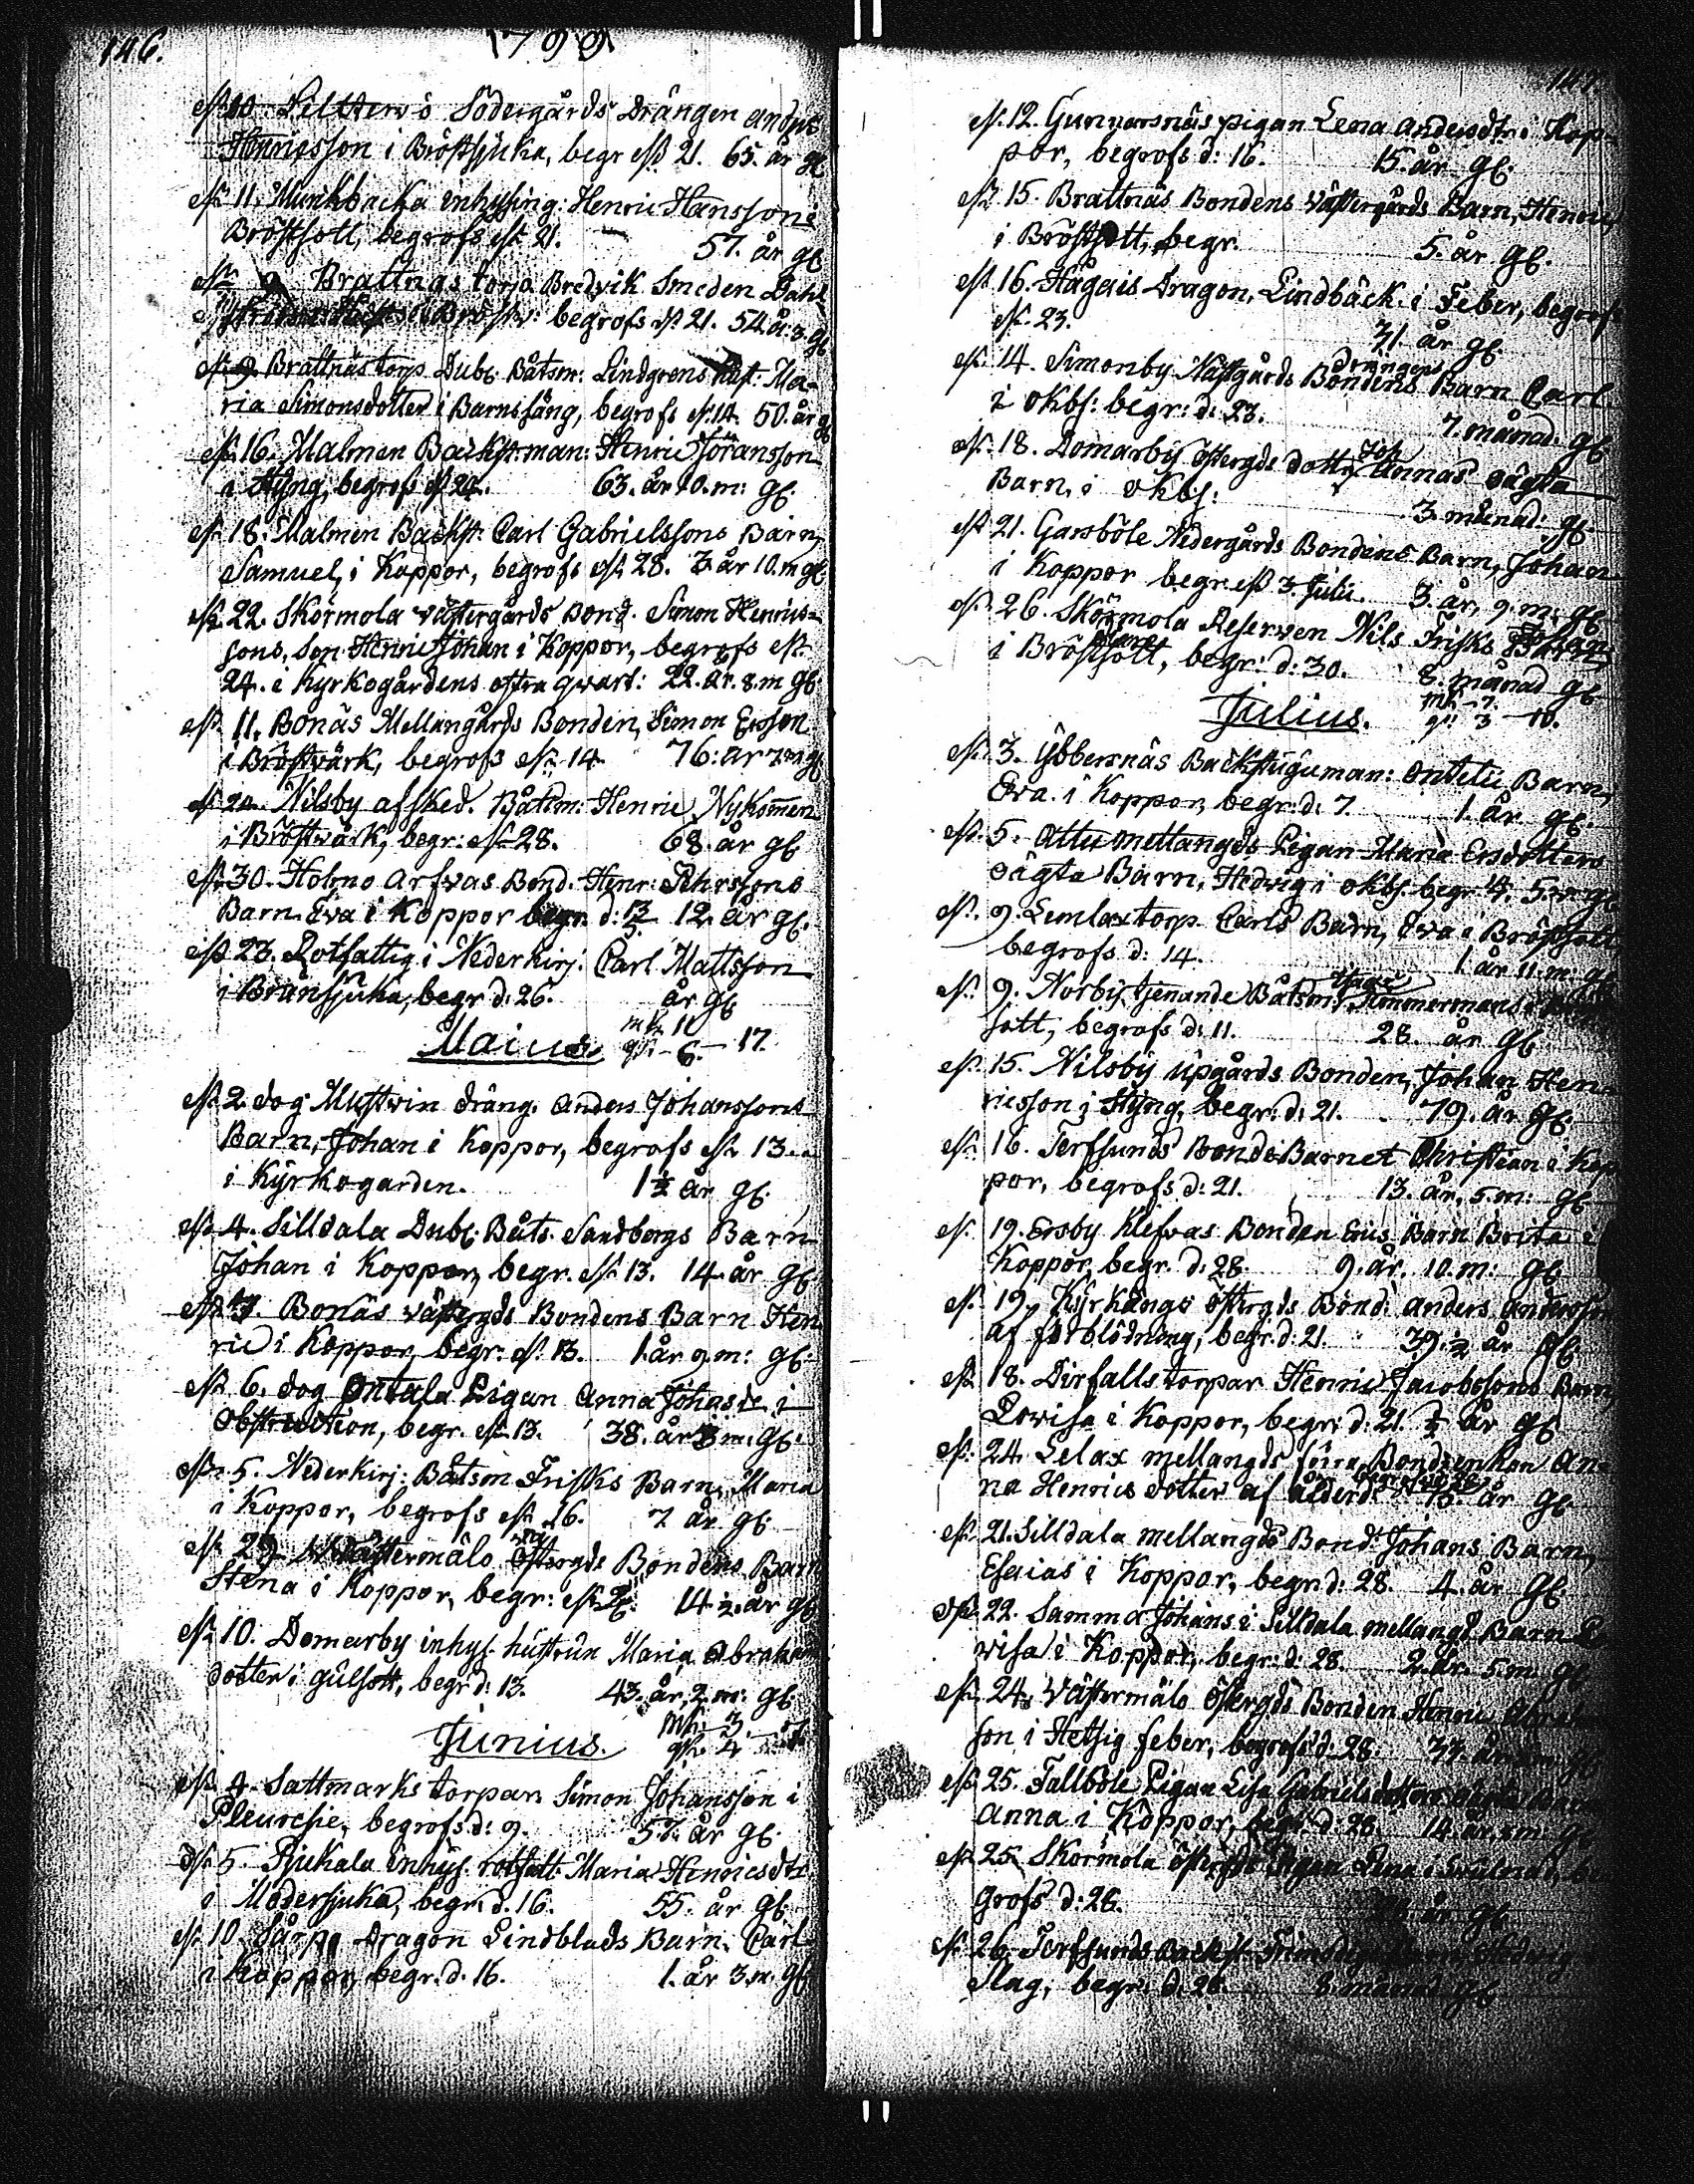 146.
1799
d. 10. Södergårds Drängen Andrs
Henricsson i Bröstsjuka, begr d. 21. 65. år gl
d. 11. Munkbacka inhysing: Henric Hansson i
Bröstsott, begrofs d. 21. 57. år gl
d. 9 Brattnäs torp Bredvik Smeden Dahl
begrofs d. 21. 54 år 3. gl
d. 9. Brattnäs torp. Dubl. Båtsm: Lindgrens hust: Ma-
ria Simonsdotter i Barnsäng, begrofs d. 14. 50. år gl
d. 16. Malmen Backst.man: Henric Jöransson
i Styng, begrofs d. 24. 63. år 10. m: gl.
d. 18. Malmen Backst: Carl Gabrielssons Barn,
Samuel, i Koppor, begrofs d. 28. 3 år 10. m gl
d. 22. Skörmola Västergårds Bond. Simon Henrics-
sons, Son Henric Johan i Koppor, begrofs d.
24. i Kyrkogårdens östra qvart: 22. år. 8. m gl
d. 11. Bonäs Mellangårds Bonden, Simon Ersson
i Bröstvärk, begrofs d. 14 76: år 7 m gl
d. 24. Nilsby afsked. Båtsm: Henric Nykomen
i Bröstvärk, begr: d. 28. 68. år gl
d. 30. Holmo Arfvas Bond. Henr: Pehrssons
Barn. Eva i Koppor begr. d: 13/5 12. år gl.
d. 23. Rotfattig i Nederkirj. Carl Mattsson
i Bränsjuka, begr d: 26. år gl
Maius. mk 11
qk. - 6. - 17.
d. 2. dog Mustvin dräng. Anders Johanssons
Barn, Johan i Koppor, begrofs d. 13.
i Kyrkogarden. 1½ år gl.
d. 4. Silldala Dubl. Båts. Sandbergs Barn
Johan i Koppor, begr. d. 13. 14 år gl
d. 7. Bonäs Västergds Bondens Barn Hen
ric i Koppor, begr: d. 13. 1. år 9. m: gl.
d. 6. dog Ontala Pigan Anna Johasdr i
Obstruction, begr. d. 13. 38. år 3 m: gl.
d. 5. Nederkirj: Båtsm Frisks Barn, Maria
i Koppor, begrofs d. 16. 7 år gl.
d. 29. Västermålo Östergds Bondens Barn
Stena i Koppor, begr: d. 14 ½. år gl
d. 10. Domarby inhys. hustrun Maria Abrahams
dotter i gulsott, begr d: 13. 43. år, 2. m: gl
Junius. Mk. 3.
qk. 4
d. 4. Sattmarks torparn Simon Johansson i
Pleuresie, begrofs d: 9. 57. år gl.
d. 5. Pjukala inhys. rotfatt. Maria Henricsdtr
i Modersjuka, begr. d. 16. 55. år gl.
d. 10. Sårpo Dragon Lindblads Barn, Carl
i Koppor, begr. d. 16. 1. år 3. m. gl
147.
d. 12. Gunnarsnäs pigan Lena Andersdtr i Kop-
por, begrofs d: 16. 15. år gl.
d. 15. Brattnäs Bondens Västergårds Barn, Henric,
i Bröstsott, begr. 5. år gl.
d. 16. Hågais Dragon, Lindbäck i Feber, begrofs
d. 23. 71. år gl.
drängens
d. 14. Simonby Nästgårds Bondens Barn Carl
i okbs: begr: d: 23. 7. månad: gl
Joh
d. 18. Domarby östergds dottr Annas oägta
Barn, i okbs: 3. månad: gl.
d. 21. Garsböle Nedergårds Bondens Barn, Johan
i Koppor begr. d. 3. Julii. 3. år, 9. m: gl
d. 26. Skörmola Reserven Nils Frisks Johan
i Bröstsott, begr: d: 30. 8. månad gl
Julius. mk - 7.
qk 3 - 10.
d. 3. Ybbersnäs Backstuguman: Ontelu Barn,
Eva. i Koppor, begr. d: 7. 1. år gl.
d. 5. Attu mellangds Pigan Maria Ersdotters
oägta Barn, Hedwig i okbs. begr 14. 5. m gl
d. 9. Lemlax torp. Carls Barn, Eva i Bröstsott
begrofs d: 14. 1. år 11. m: gl
d. 9. Norby tjenande Båtsm, Timmermans i Bröst
sott, begrofs d: 11. 28. år gl
d. 15. Nilsby upgårds Bonden, Johan Hen-
ricsson i Styng, begr. d: 21. 79. år gl.
d. 16. Terfsunds Bonde Barnet Christian i Kop
por, begrofs d: 21. 13. år, 5. m: gl
d. 19. Ersby Klefvas Bonden Erics Barn Brita i
Koppor, begr. d: 28. 9. år. 10. m: gl
d. 19. Kyrkängs östergds Bond: Anders Andersson
af förblödning, begr. d: 21. 39. ½ år gl
d. 18. Dirfalls torpar Henric Jacobssons Barn,
Lovisa i Koppor, begr: d: 21. ½ år gl
d. 24. Lelax mellangds förra Bondeenkan An-
na Henrics dotter af ålderd. 75. år gl.
d. 21. Silldala mellangds Bond: Johans Barn,
Esaias i Koppor, begr d: 28. 4. år gl.
d. 22. Samma Johans i Silldala mellangd Barn Lo
visa i Koppor, begr: d. 28. 2. år. 5. m. gl
d. 24. Västermålo östergds Bonden Henric
son i Hetsig feber, begrofs d: 28. 37. år gl
d. 25. Tallböle Pigan Lisa Gabrielsdotters oägta Barn
Anna i Koppor, begr. d: 28. 14. gl
d. 25. Skörmola östergds Pigan Lena i be
grofs d: 28. år gl
d. 26. Terfsunds Backst.
Slag, begr. d. 28. 8. månad gl